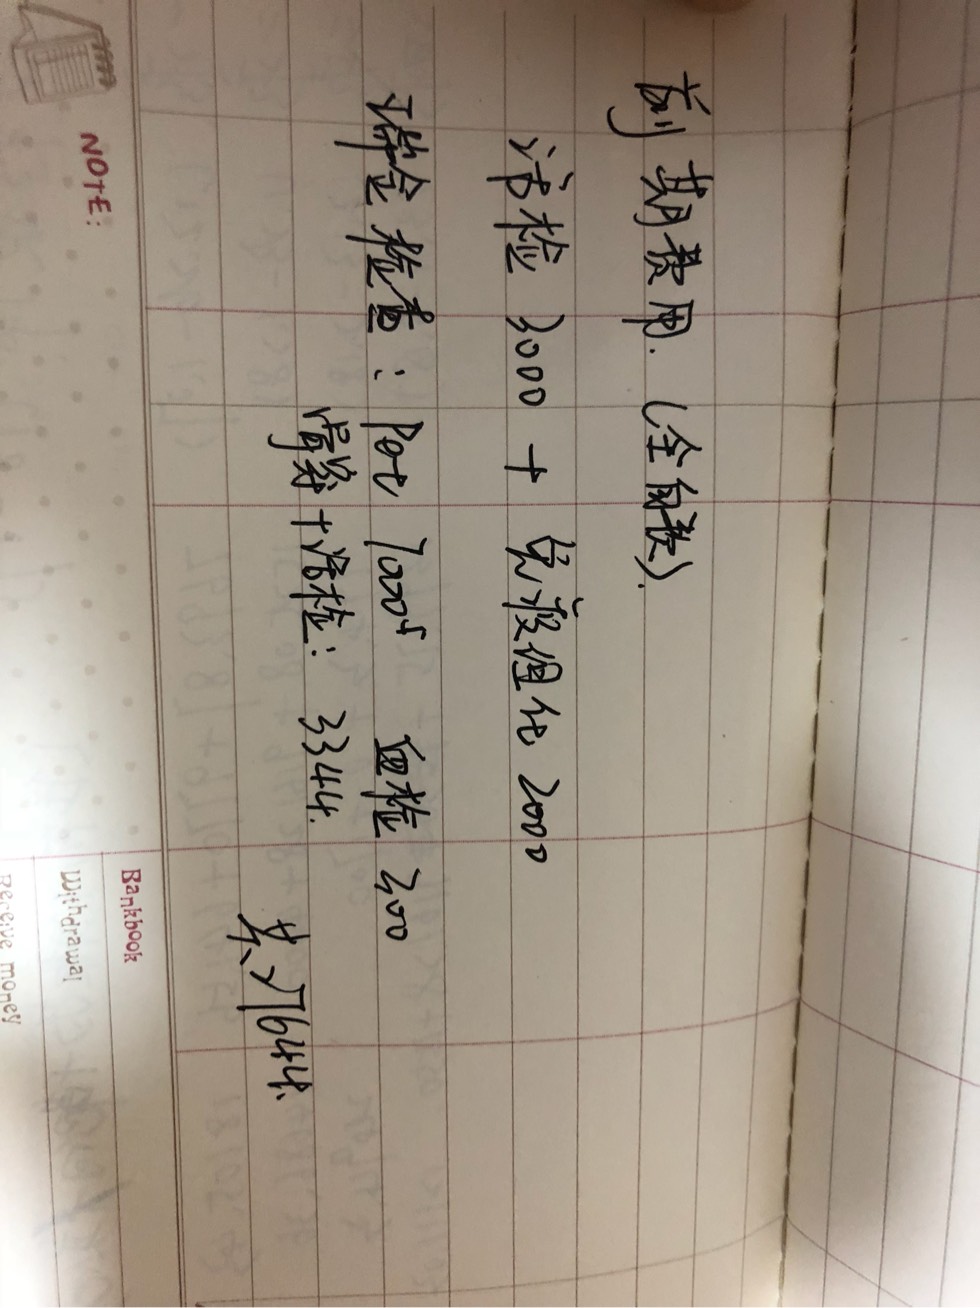 前期费用.(全自费).
活检 3000 + 免疫组化 2000
检查: Pet 7000 血检 300
骨穿+活检: 3344.
共
NOTE:
Bankbook
Withdrawal
Receive money